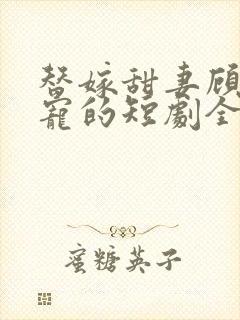 替嫁甜妻顾
宠的短劇全
蜜糖英子